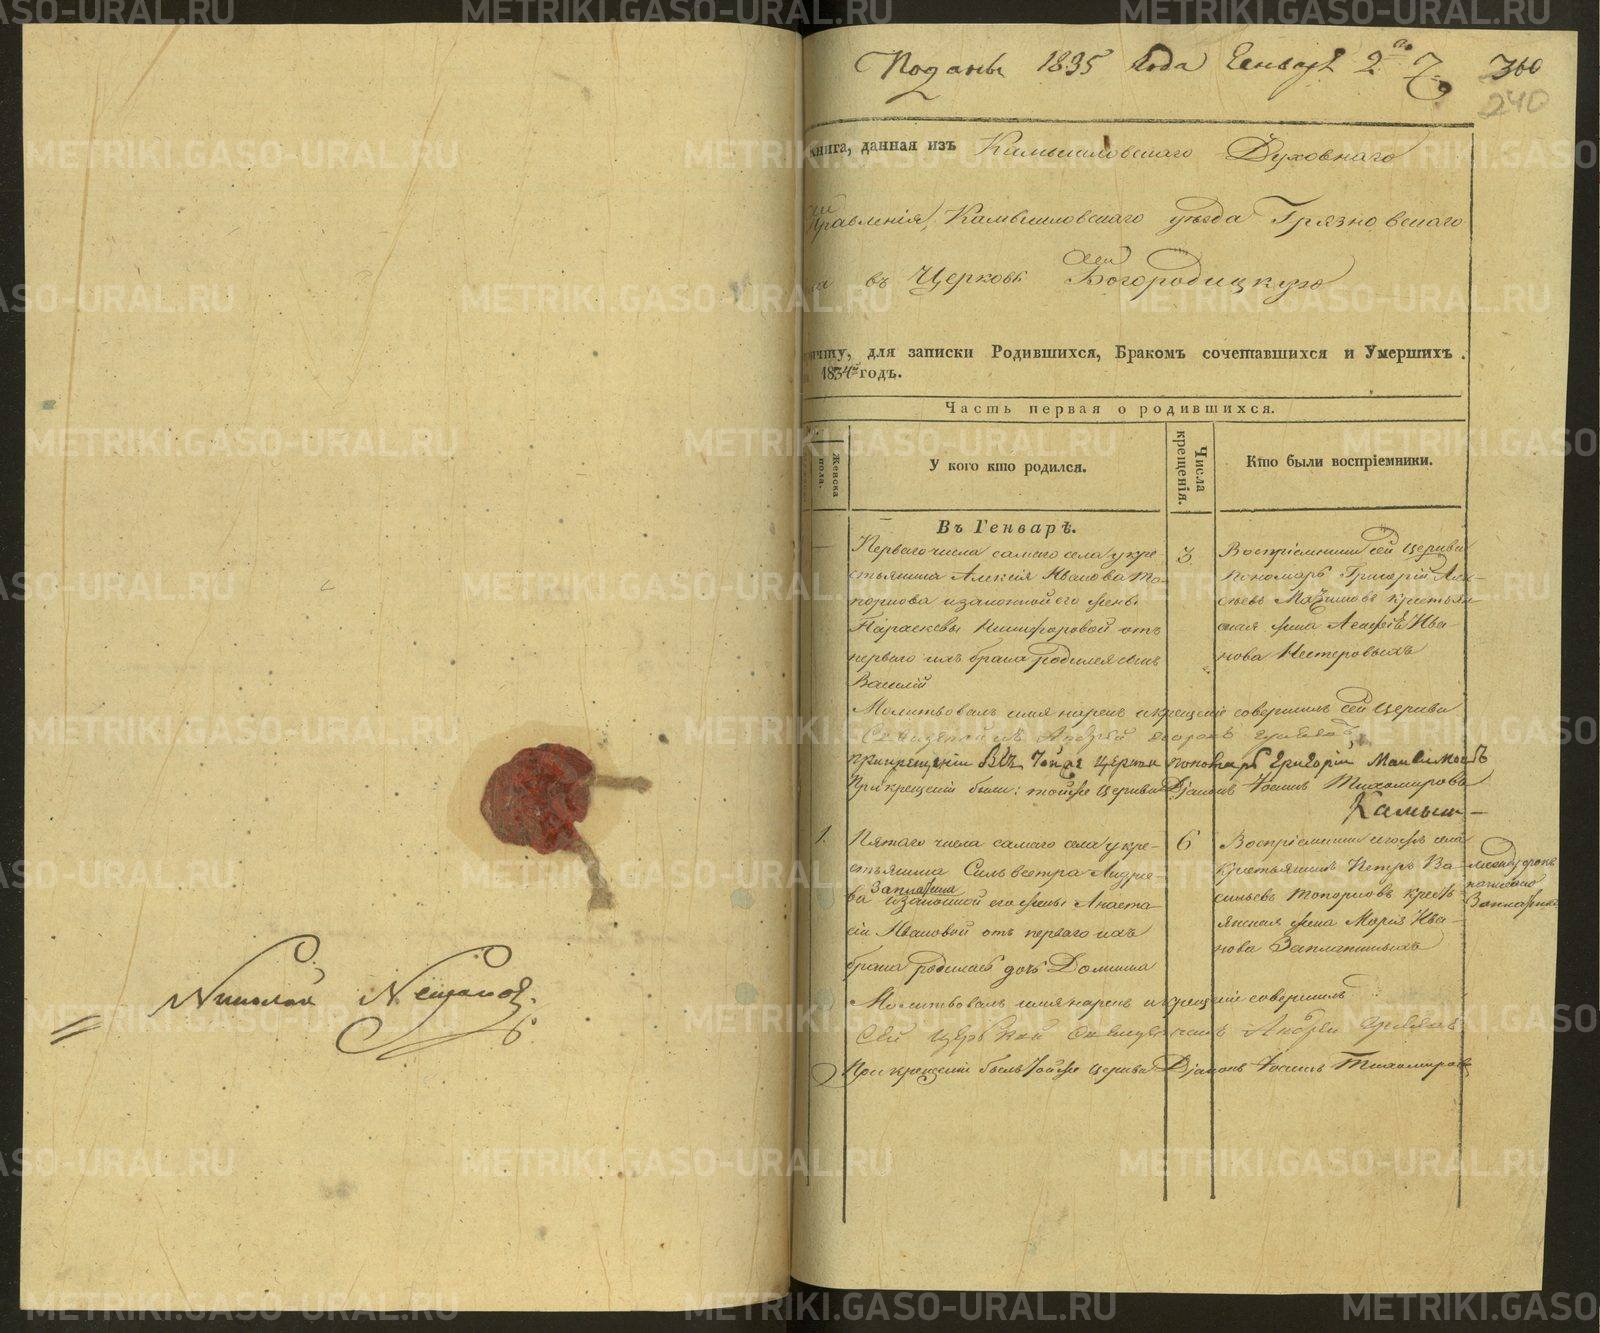 Николай
Поданы 1835 года Генваря 2го
360
240
книга, данная изъ Камышловскаго Духовнаго
Правленія, Камышловскаго уѣзда Грязновскаго
въ Церковь Богородицкую
причту, для записки Родившихся, Бракомъ сочетавшихся и Умершихъ.
1834й годъ.
Часть первая о родившихся.
Женска пола.
У кого кто родился.
Числа крещенія.
Кто были воспріемники.
Въ Генварѣ.
Перваго числа самаго села у кре-
стьянина Алексія Иванова То-
поркова и законной его жены
Параскевы Никифоровой отъ
перваго ихъ брака родился сынъ
Василій
3
Воспріемники сей церкви
пономарь Григорій Алек-
сѣевъ Максимовъ крестьян-
ская жена Ива-
нова Нестеровыхъ
Молитвовалъ имя нарекъ и крещеніе совершилъ сей церкви
Священникъ Андрей
при крещеніи былъ тойже церкви пономарь Григорій Максимовъ
При крещеніи были: тойже церкви Діаконъ Іоаннъ Тихомировъ
Камыш-
1.
Пятаго числа самаго села у кре-
стьянина Сильвестра Андрее-
ва Заплатина и законной его жены Анаста-
сіи Ивановой отъ перваго ихъ
брака родилась дочь Домника
6
Воспріемники тогоже села
крестьянинъ Петръ Ва-
сильевъ Топорковъ кресть-
янская жена Марія Ива-
нова Заплатиныхъ
между строкъ
написано
Заплатина
Молитвовалъ имя нарекъ и крещеніе совершилъ
Сей церкви Священникъ Андрей
При крещеніи былъ тойже церкви Діаконъ Іоаннъ Тихомировъ
METRIKI.GASO-URAL.RU